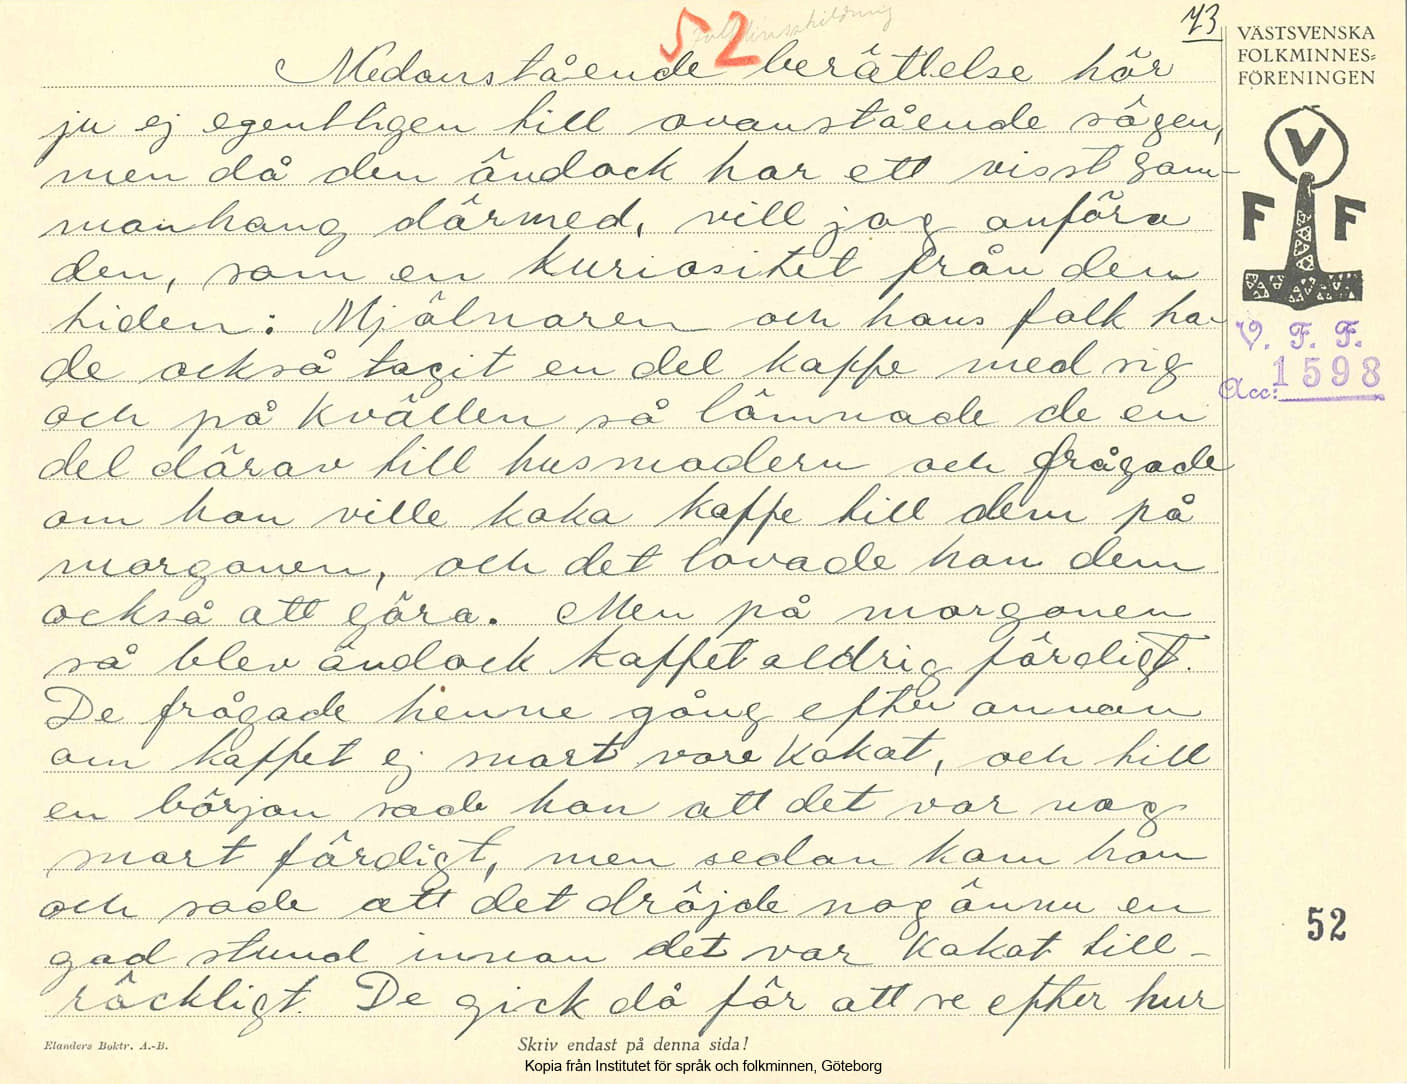 52
73
VÄSTSVENSKA
FOLKMINNES=
FÖRENINGEN
Nedanstående berättelse hör
ju ej egentligen till ovanstående sägen,
men då den ändock har ett visst sam-
manhang därmed, vill jag anföra
den, som en kuriositet från den
tiden: Mjölnaren och hans folk ha-
de också tagit en del kaffe med sig
och på kvällen så lämnade de en
del därav till husmodern och frågade
om hon ville koka kaffe till dem på
morgonen, och det lovade hon dem
också att göra. Men på morgonen
så blev ändock kaffet aldrig färdigt.
De frågade henne gång efter annan
om kaffet ej snart vore kokat, och till
en början sade hon att det var nog
snart färdigt, men sedan kom hon
och sade att det dröjde nog ännu en
god stund innan det var kokat till-
räckligt. De gick då för att se efter hur
V
F F
V. F. F.
Acc: 1598
52
Elanders Boktr. A.-B.
Skriv endast på denna sida!
Kopia från Institutet för språk och folkminnen, Göteborg